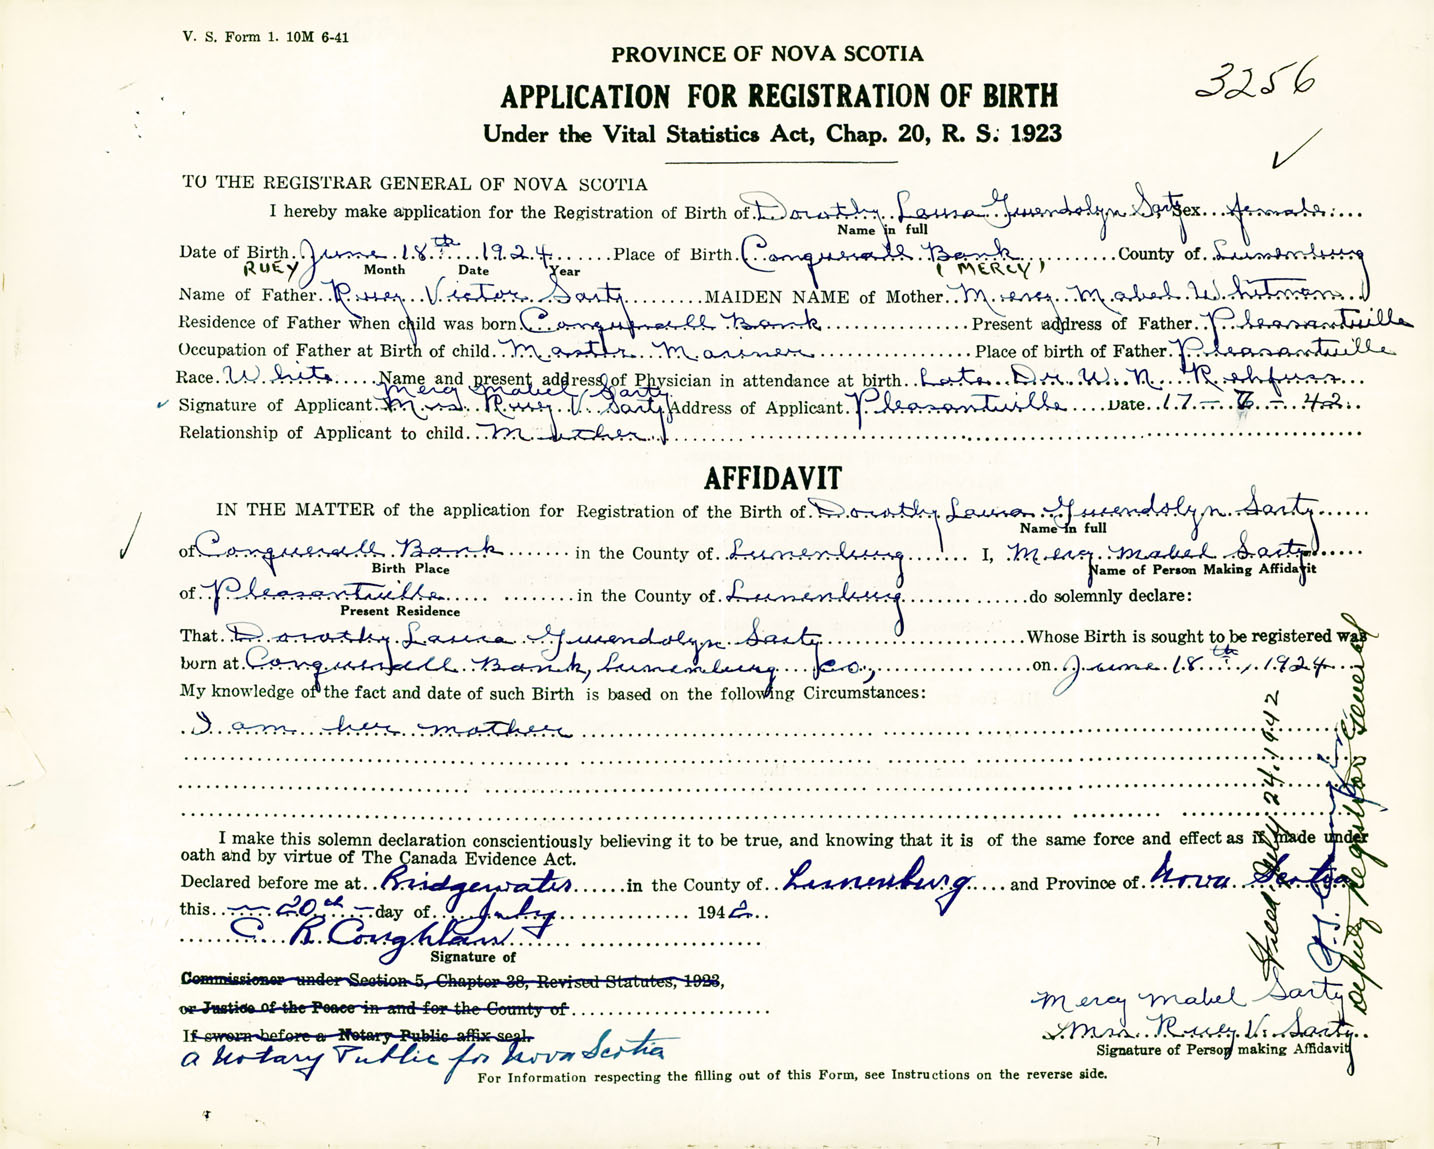 V. S. Form 1. 10M 6-41
PROVINCE OF NOVA SCOTIA
3256
APPLICATION FOR REGISTRATION OF BIRTH
Under the Vital Statistics Act, Chap. 20, R. S. 1923
TO THE REGISTRAR GENERAL OF NOVA SCOTIA
I hereby make application for the Registration of Birth of Dorothy Laura Gwendolyn Sarty, Sex female
Name in full
Date of Birth June 18th 1924 Place of Birth Conquerall Bank County of Lunenburg
RUEY Month Date Year (MERCY)
Name of Father Ruey Victor Sarty MAIDEN NAME of Mother Mercy Mabel Whitman
Residence of Father when child was born Conquerall Bank Present address of Father Pleasantville
Occupation of Father at Birth of child Master Mariner Place of birth of Father Pleasantville
Race White Name and present address of Physician in attendance at birth Late Dr. W. N. Rehfuss
Mercy Mabel Sarty
Signature of Applicant Mrs Ruey V. Sarty Address of Applicant Pleasantville Date 17-7-42
Relationship of Applicant to child Mother
AFFIDAVIT
IN THE MATTER of the application for Registration of the Birth of Dorothy Laura Gwendolyn Sarty
Name in full
of Conquerall Bank in the County of Lunenburg I, Mercy Mabel Sarty
Birth Place Name of Person Making Affidavit
of Pleasantville in the County of Lunenburg do solemnly declare:
Present Residence
That Dorothy Laura Gwendolyn Sarty Whose Birth is sought to be registered was
born at Conquerall Bank, Lunenburg Co., on June 18th, 1924
My knowledge of the fact and date of such Birth is based on the following Circumstances:
I am her mother
I make this solemn declaration conscientiously believing it to be true, and knowing that it is of the same force and effect as if made under
oath and by virtue of The Canada Evidence Act.
Declared before me at Bridgewater in the County of Lunenburg and Province of Nova Scotia
this 20th day of July 1942
C. R. Coughlan
Signature of
Commissioner under Section 5, Chapter 38, Revised Statutes, 1923,
or Justice of the Peace in and for the County of
If sworn before a Notary Public affix seal.
a Notary Public for Nova Scotia
Mercy Mabel Sarty
Mrs. Ruey V. Sarty
Signature of Person making Affidavit
For Information respecting the filling out of this Form, see Instructions on the reverse side.
Filed July 24, 1942
Deputy Registrar General